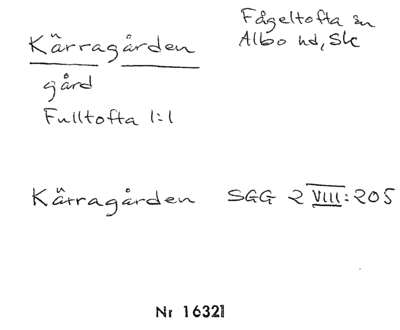 Kärragården
Fågeltofta sn
Albo hd, Sk
gård
Fulltofta 1:1
Kärragården SGG 2 VIII:205
Nr 16321